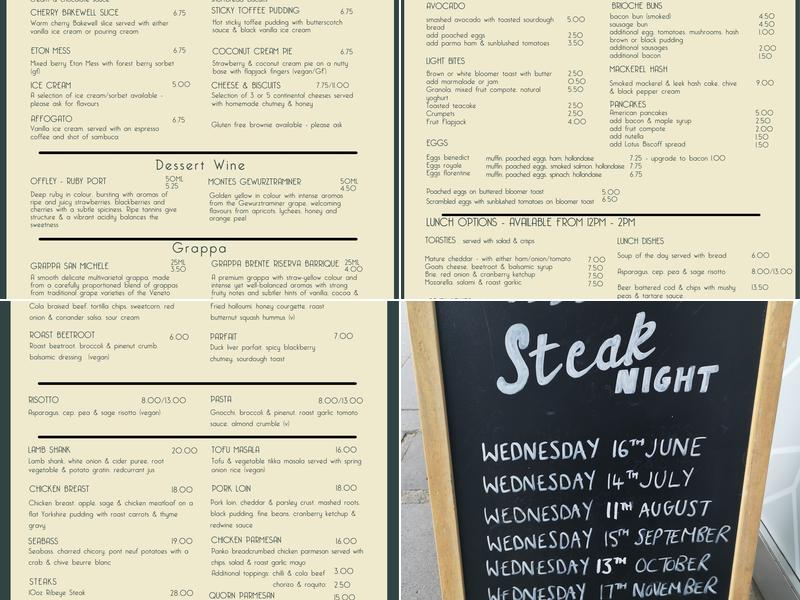 CHERRY BAKEWELL SLICE 6.75
Warm cherry Bakewell slice served with either
vanilla ice cream or pouring cream
ETON MESS 6.75
Mixed berry Eton Mess with forest berry sorbet
(gf)
ICE CREAM 5.00
A selection of ice cream/sorbet available -
please ask for flavours
AFFOGATO 6.75
Vanilla ice cream, served with an espresso
coffee and shot of sambuca
STICKY TOFFEE PUDDING 6.75
Hot sticky toffee pudding with butterscotch
sauce & black vanilla ice cream
COCONUT CREAM PIE 6.75
Strawberry & coconut cream pie on a nutty
base with flapjack fingers (vegan/GF)
CHEESE & BISCUITS 7.75/11.00
Selection of 3 or 5 continental cheeses served
with homemade chutney & honey
Gluten free brownie available - please ask
Dessert Wine
OFFLEY - RUBY PORT 50ML
5.25
Deep ruby in colour, bursting with aromas of
ripe and juicy strawberries, blackberries and
cherries with a subtle spiciness. Ripe tannins give
structure & a vibrant acidity balances the
sweetness
MONTES GEWURZTRAMINER 50ML
4.50
Golden yellow in colour with intense aromas
from the Gewurztraminer grape, welcoming
flavours from apricots, lychees, honey and
orange peel
Grappa
GRAPPA SAN MICHELE 25ML
3.50
A smooth delicate multivarietal grappa, made
from a carefully proportioned blend of grappas
from traditional grape varieties of the Veneto
GRAPPA BRENTE RISERVA BARRIQUE 25ML
4.00
A premium grappa with straw-yellow colour and
intense yet well-balanced aromas with strong
fruity notes and subtler hints of vanilla, cocoa &
AVOCADO
smashed avocado with toasted sourdough 5.00
bread
add poached eggs 2.50
add parma ham & sunblushed tomatoes 3.50
LIGHT BITES
Brown or white bloomer toast with butter 2.50
add marmalade or jam 0.50
Granola, mixed fruit compote, natural 5.50
yoghurt
Toasted teacake 2.50
Crumpets 2.50
Fruit Flapjack 4.00
BRIOCHE BUNS
bacon bun (smoked) 4.50
sausage bun 4.50
additional egg, tomatoes, mushrooms, hash 1.00
brown or black pudding
additional sausages 2.00
additional bacon 1.50
MACKEREL HASH
Smoked mackerel & leek hash cake, chive 9.00
& black pepper cream
PANCAKES
American pancakes 5.00
add bacon & maple syrup 2.50
add fruit compote 2.00
add nutella 1.50
add Lotus Biscoff spread 1.50
EGGS
Eggs benedict muffin, poached eggs, ham, hollandaise 7.25 - upgrade to bacon 1.00
Eggs royale muffin, poached eggs, smoked salmon, hollandaise 7.75
Eggs florentine muffin, poached eggs, spinach, hollandaise 6.75
Poached eggs on buttered bloomer toast 5.00
Scrambled eggs with sunblushed tomatoes on bloomer toast 6.50
LUNCH OPTIONS - AVAILABLE FROM 12PM - 2PM
TOASTIES served with salad & crisps
Mature cheddar - with either ham/onion/tomato 7.00
Goats cheese, beetroot & balsamic syrup 7.50
Brie, red onion & cranberry ketchup 7.50
Mozarella, salami & roast garlic 7.50
LUNCH DISHES
Soup of the day served with bread 6.00
Asparagus, cep, pea & sage risotto 8.00/13.00
Beer battered cod & chips with mushy 13.50
peas & tartare sauce
Cola braised beef, tortilla chips, sweetcorn, red
onion & coriander salsa, sour cream
ROAST BEETROOT 6.00
Roast beetroot, broccoli & pinenut crumb,
balsamic dressing (vegan)
Fried halloumi, honey courgette, roast
butternut squash hummus (v)
PARFAIT 7.00
Duck liver parfait, spicy blackberry
chutney, sourdough toast
RISOTTO 8.00/13.00
Asparagus, cep, pea & sage risotto (vegan)
PASTA 8.00/13.00
Gnocchi, broccoli & pinenut, roast garlic tomato
sauce, almond crumble (v)
LAMB SHANK 20.00
Lamb shank, white onion & cider puree, root
vegetable & potato gratin, redcurrant jus
CHICKEN BREAST 18.00
Chicken breast, apple, sage & chicken meatloaf on a
flat Yorkshire pudding with roast carrots & thyme
gravy
SEABASS 19.00
Seabass, charred chicory, pont neuf potatoes with a
crab & chive beurre blanc
STEAKS
10oz Ribeye Steak 28.00
TOFU MASALA 16.00
Tofu & vegetable tikka masala served with spring
onion rice (vegan)
PORK LOIN 18.00
Pork loin, cheddar & parsley crust, mashed roots,
black pudding, fine beans, cranberry ketchup &
redwine sauce
CHICKEN PARMESAN 16.00
Panko breadcrumbed chicken parmesan served with
chips, salad & roast garlic mayo
Additional toppings: chilli & cola beef 3.00
chorizo & roquito: 2.50
QUORN PARMESAN 15.00
Steak
NIGHT
WEDNESDAY 16TH JUNE
WEDNESDAY 14TH JULY
WEDNESDAY 11TH AUGUST
WEDNESDAY 15TH SEPTEMBER
WEDNESDAY 13TH OCTOBER
WEDNESDAY 17TH NOVEMBER